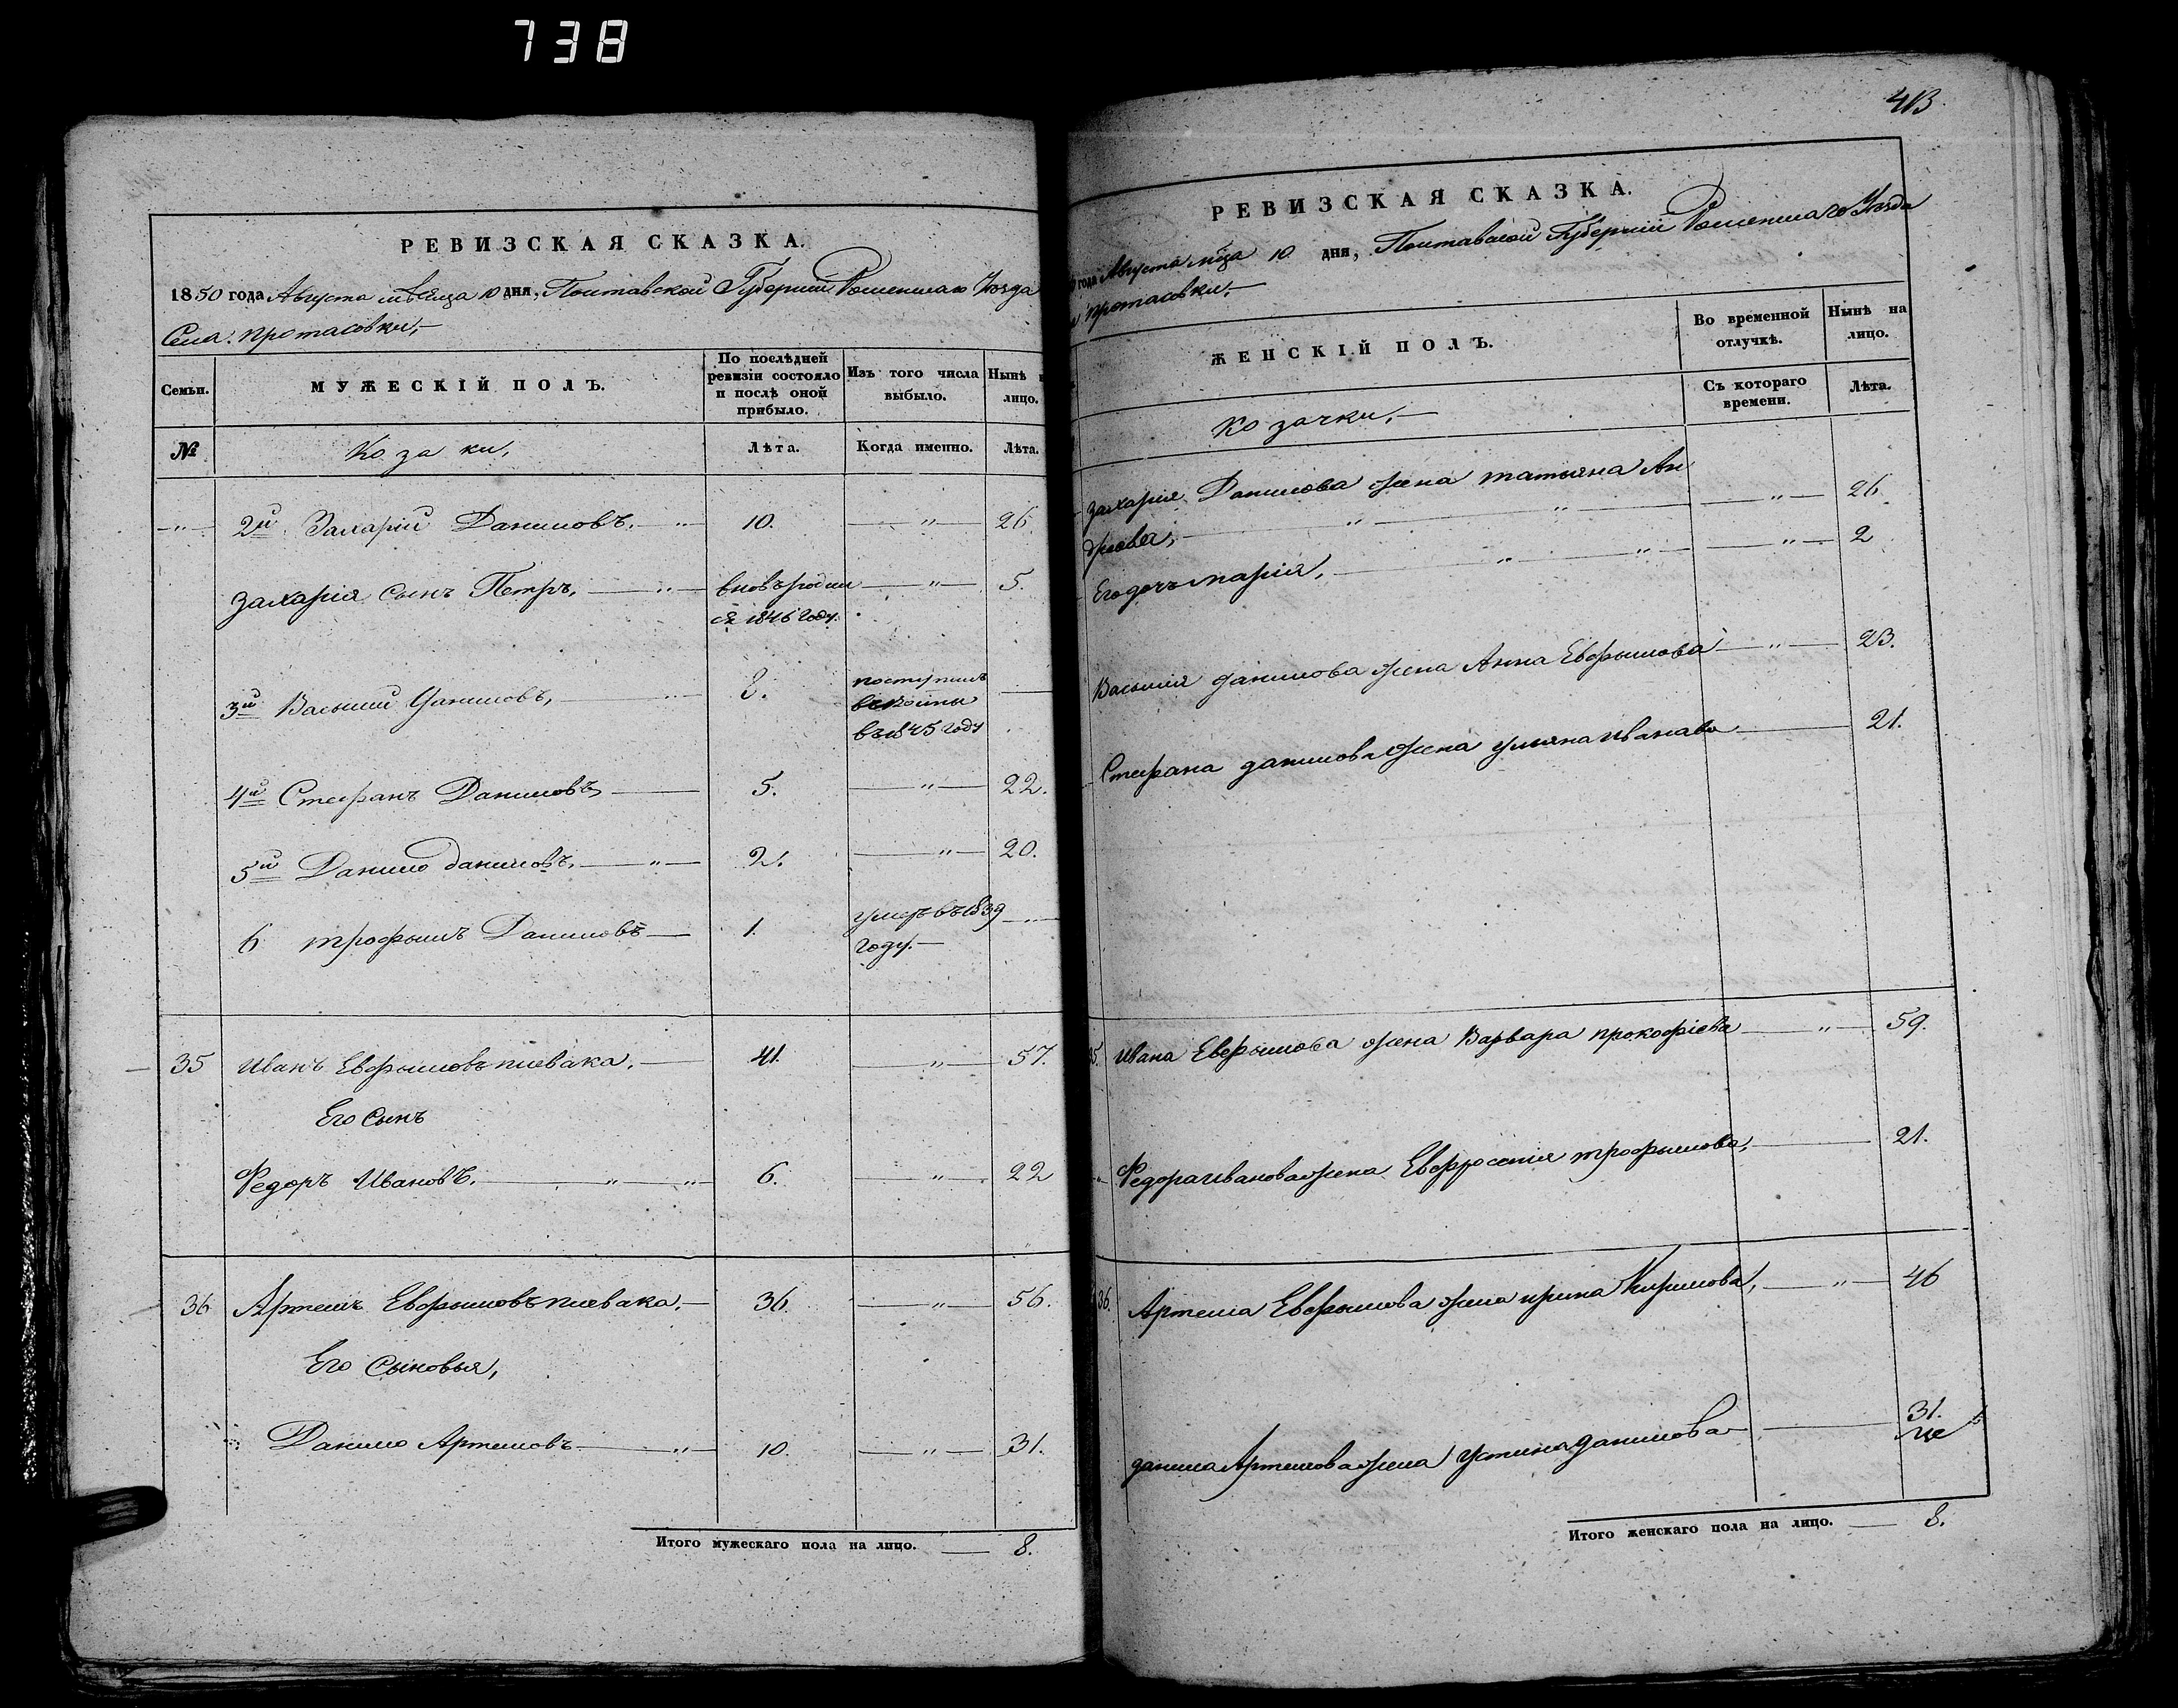 738
РЕВИЗСКАЯ СКАЗКА.
1850 года Августа мѣсяца 10 дня, Полтавской Губернiи Роменскаго Уѣзда
Села Протасовки,
Семьи.
МУЖЕСКIЙ ПОЛЪ.
По послѣдней
ревизiи состояло
и послѣ оной
прибыло.
Изъ того числа
выбыло.
Нынѣ н
лицо.
№
Козаки,
Лѣта.
Когда именно.
Лѣта.
2й Захарiй Даниловъ. 10. 26
Захарiя сынъ Петръ, вновь родил 5.
ся 1846 году.
3й Василий Даниловъ, 8. поступилъ
въ
въ 1845 году
4й Стефанъ Даниловъ 5. 22.
5й Данило даниловъ. 2. 20.
6 трофымъ Даниловъ 1. умеръ въ 1839
году.
35 Иванъ Евфымовъ пивака. 41. 57.
Его Сынъ
Федоръ Ивановъ. 6. 22
36 Артемъ Евфымовъ пивака. 36. 56.
Его Сыновья,
Данило Артемовъ 10. 31.
Итого мужескаго пола на лицо. 8.
413
РЕВИЗСКАЯ СКАЗКА.
года Августа мца 10 дня, Полтавской Губернiй Роменскаго Уѣзда
протасовки.
ЖЕНСКIЙ ПОЛЪ.
Во временной
отлучкѣ.
Нынѣ на
лицо.
Съ котораго
времени.
Лѣта.
Козачки,
Захарiя Данилова жена татьяна Ан 26
дреева,
Его дочь марiя, 2
Василiя данилова жена Анна Евфымова 23.
Стефана данилова жена ульяна иванава 21.
35. ивана Евфымова жена Варвара прокофiева 59.
Федора иванова жена Евфросiнiя трофымова, 21.
36. Артема Евфымова жена ирина Кирилова, 46
данила Артемова жена Устина данилова 31.
Итого женскаго пола на лицо. 8.